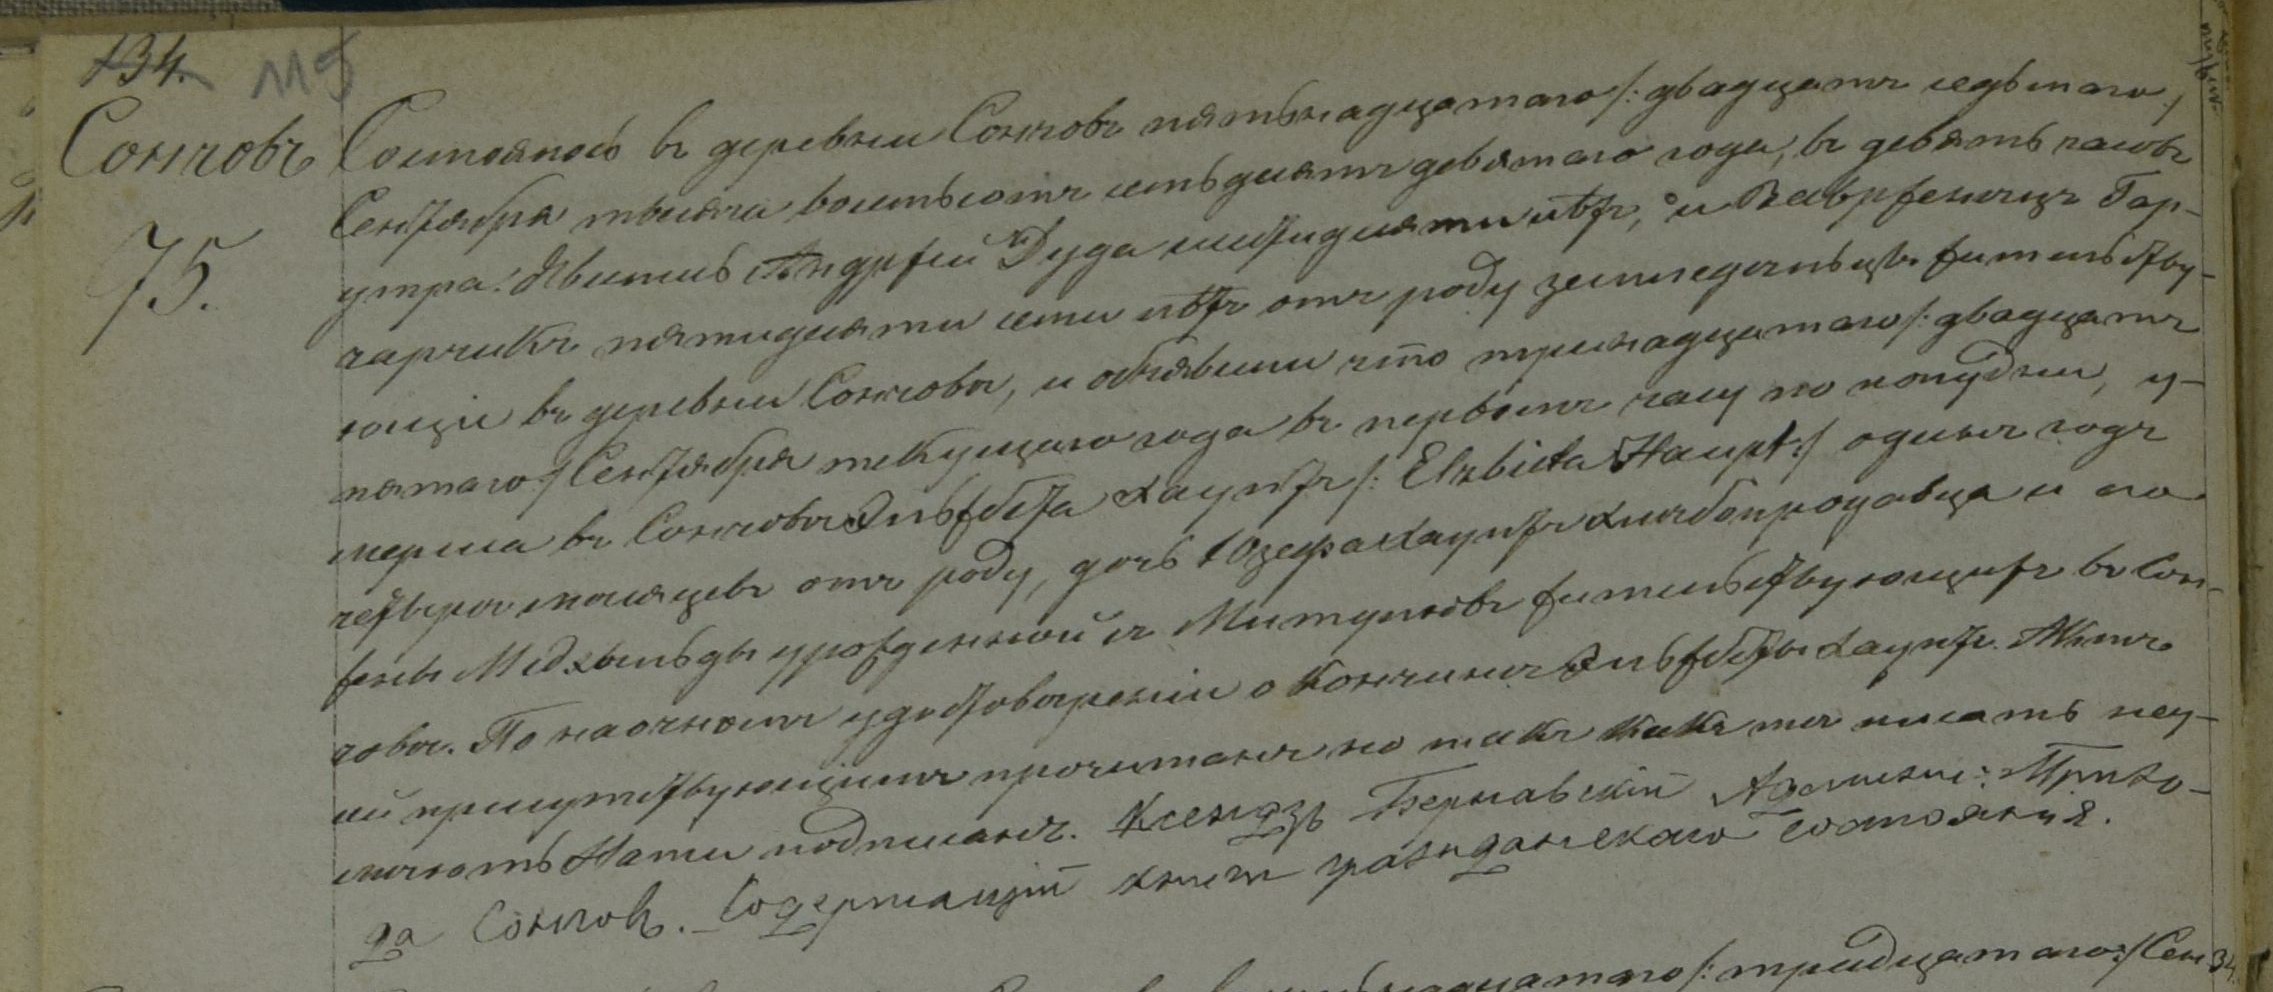 134. 115
Сончовъ Состоялось въ деревни Сончовъ пятьнадцатаго /: двадцатъ седьмаго /
75.
Сентября тысяча восемьсотъ семьдзятъ девятаго года, въ девять часовъ
утра. Явились Андржей Дуда шестидзяти лѣтъ, и Ваврженецъ Гар-
чарчикъ пятидзяти семи лѣтъ отъ роду земледѣльцы жительству-
ющіе въ деревни Сончовѣ, и объявили что тринадцатаго /: двадцатъ
пятаго :/ Сентября текущаго года въ первомъ часу по полудни, у-
мерла въ Сончовѣ Эльжбета Хауптъ /: Elzbieta Haupt :/ одинъ годъ
четыре мѣсяцевъ отъ роду, дочь Юзефа Хауптъ хлѣбопродавца и его
жены Матыльды урожденной съ жительствующихъ въ Сон-
човѣ. По наочномъ удостовѣреніи о кончинѣ Эльжбеты Хауптъ. Актъ
сій присутствующимъ прочитанъ но такъ какъ тѣ писать неу-
мѣютъ Нами подписанъ. Ксендзъ Админи: Прихо-
да Сончовъ. Содержащій книги гражданскаго состоянія.
/: тридцатаго :/ Сен